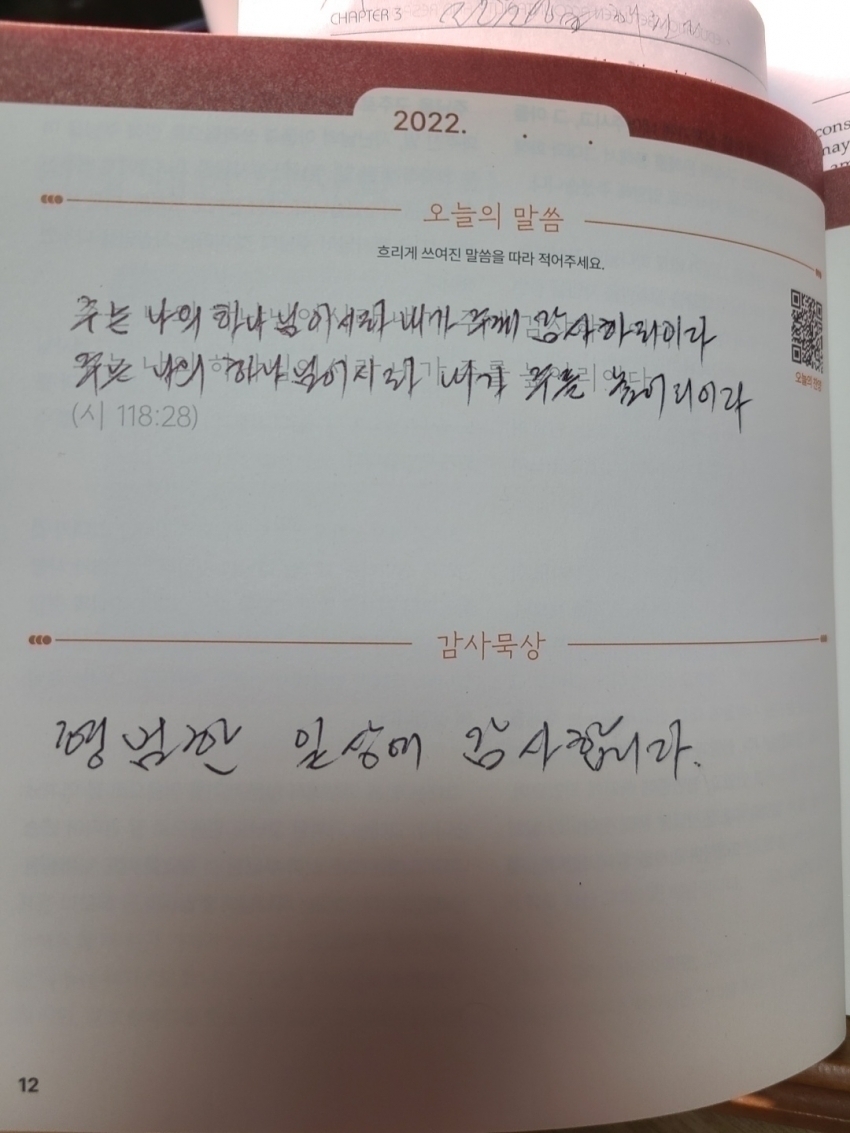 CHAPTER 3
2022.
오늘의 말씀
흐리게 쓰여진 말씀을 따라 적어주세요.
주는 나의 하나님이시라 내가 주께 감사하리이다
주는 나의 하나님이시라 내가 주를 높이리이다
(시 118:28)
오늘의 찬양
감사묵상
평범한 일상에 감사합니다.
12
cons
may